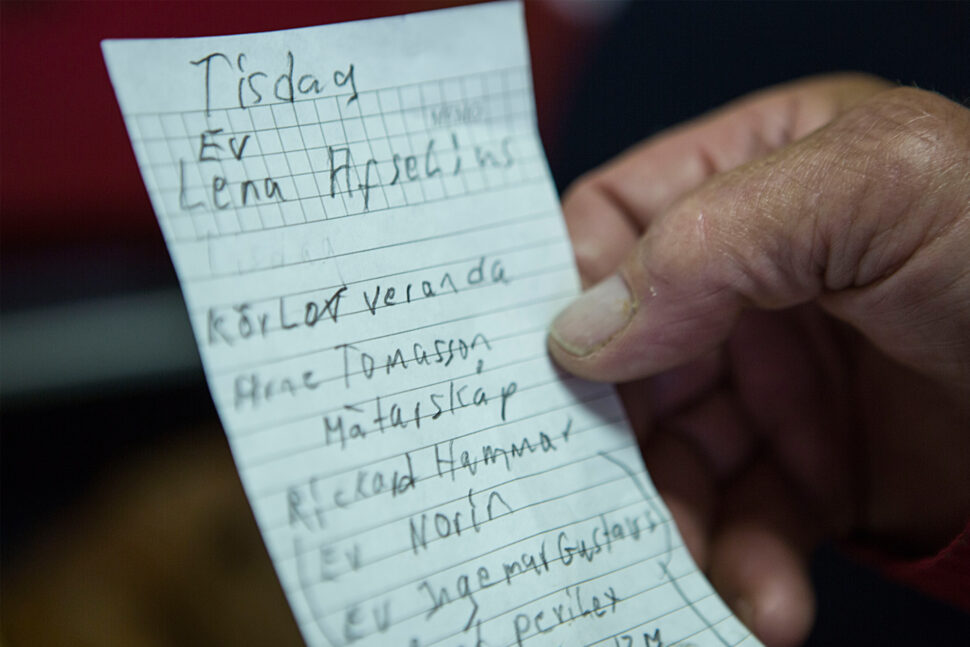 Tisdag
EV
Lena Afselins
Tisdag
KörLot veranda
Arne Tomasson
Mätarskåp
Rickard Hammar
EV Norin
EV Ingemar Gustavs
perilex